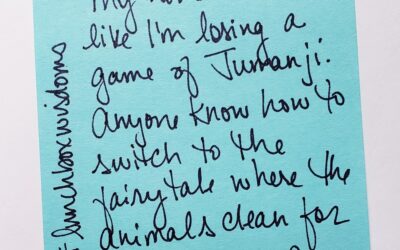 my
like I'm losing a
game of Jumanji.
Anyone know how to
switch to the
fairytale where the
animals clean for
#lunchboxwisdoms